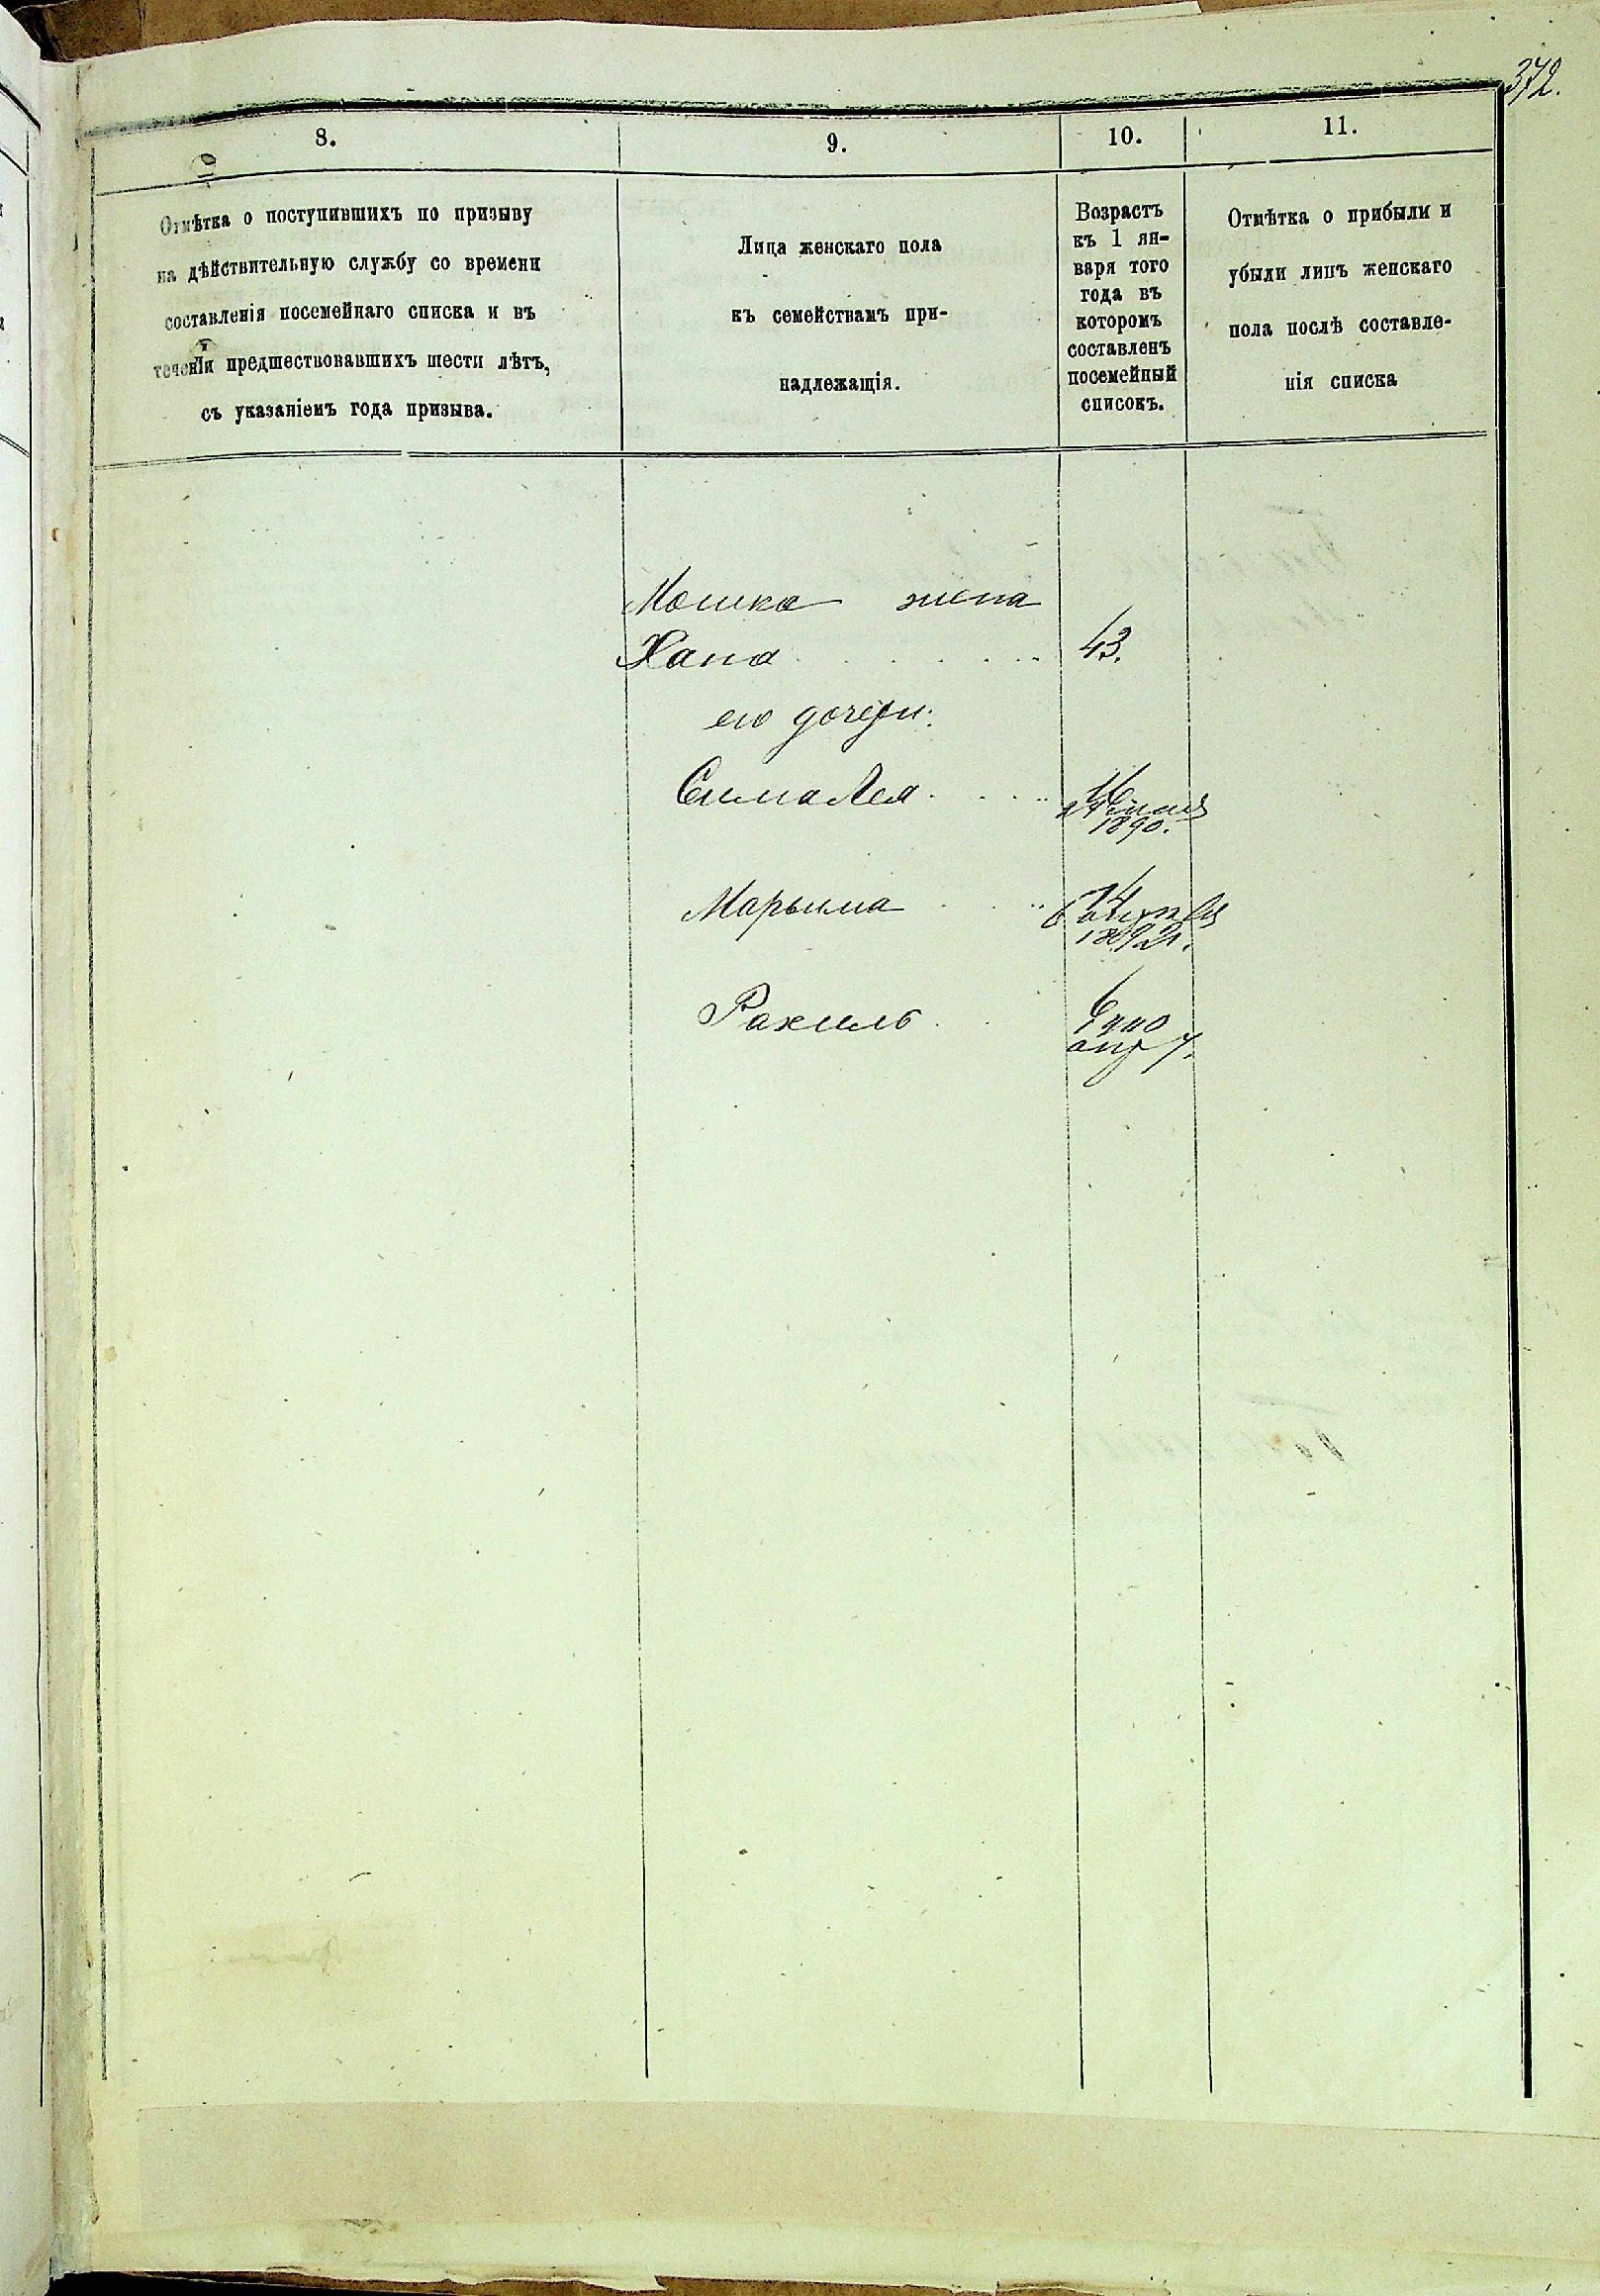 372.
8.
9.
10.
11.
Отмѣтка о поступившихъ по призыву
на дѣйствительную службу со времени
составленія посемейнаго списка и въ
теченіи предшествовавшихъ шести лѣтъ,
съ указаніемъ года призыва.
Лица женскаго пола
къ семействамъ при-
надлежащія.
Возрастъ
къ 1 ян-
варя того
года въ
которомъ
составленъ
посемейный
списокъ.
Отмѣтка о прибыли и
убыли лицъ женскаго
пола послѣ составле-
нія списка
Мошка жена
Хана 43.
его дочери:
Сима Лея 16
1890.
Марьима 14
6
1892 г.
Рахиль 6
апр 7.